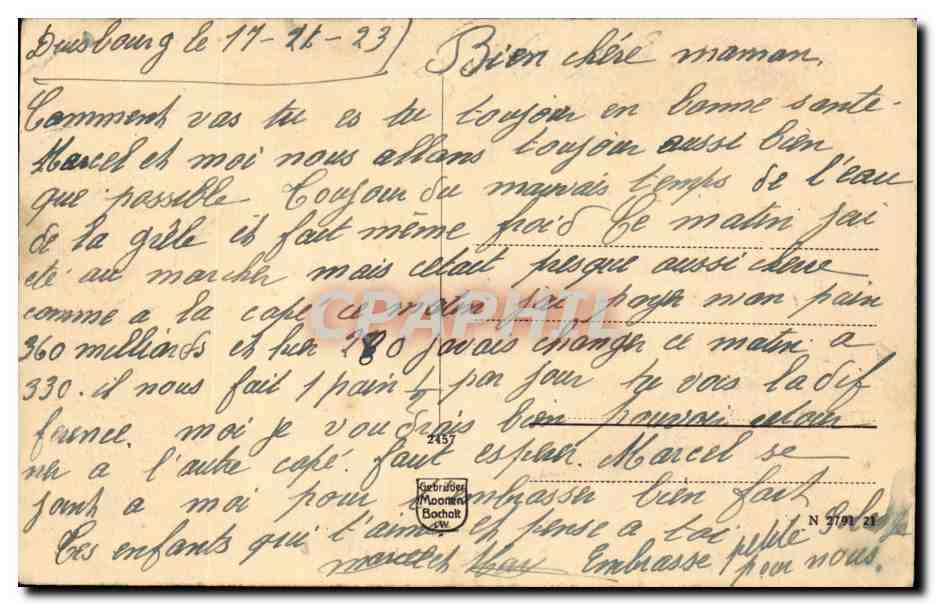 Duisbourg le 17-21-23
Bien chéré maman,
Comment vas tu es tu toujour en bonne sante.
Marcel et moi nous allons toujour aussi bien
que possible Toujour du mauvais temps de l'eau
de la grêle et fait même froid Ce matin jai
été au marcher mais cetait presque aussi chere
comme a la copé ce matin jai payer mon pain
360 milliards et hier 280 javais changer ce matin a
330. il nous fait 1 pain ½ par jour tu vois la dif
ference. moi je voudrais bien pouvoir retour
ner a l'autre copé. faut esperer. Marcel se
joint a moi pour t'embrasser bien fort
Tes enfants qui t'aime et pense a toi
Marcel et Embrasse petite
pour nous.
2457
Gebrüder
Moonen
Bocholt
i.W.
N 2791 21
CPAPHIL